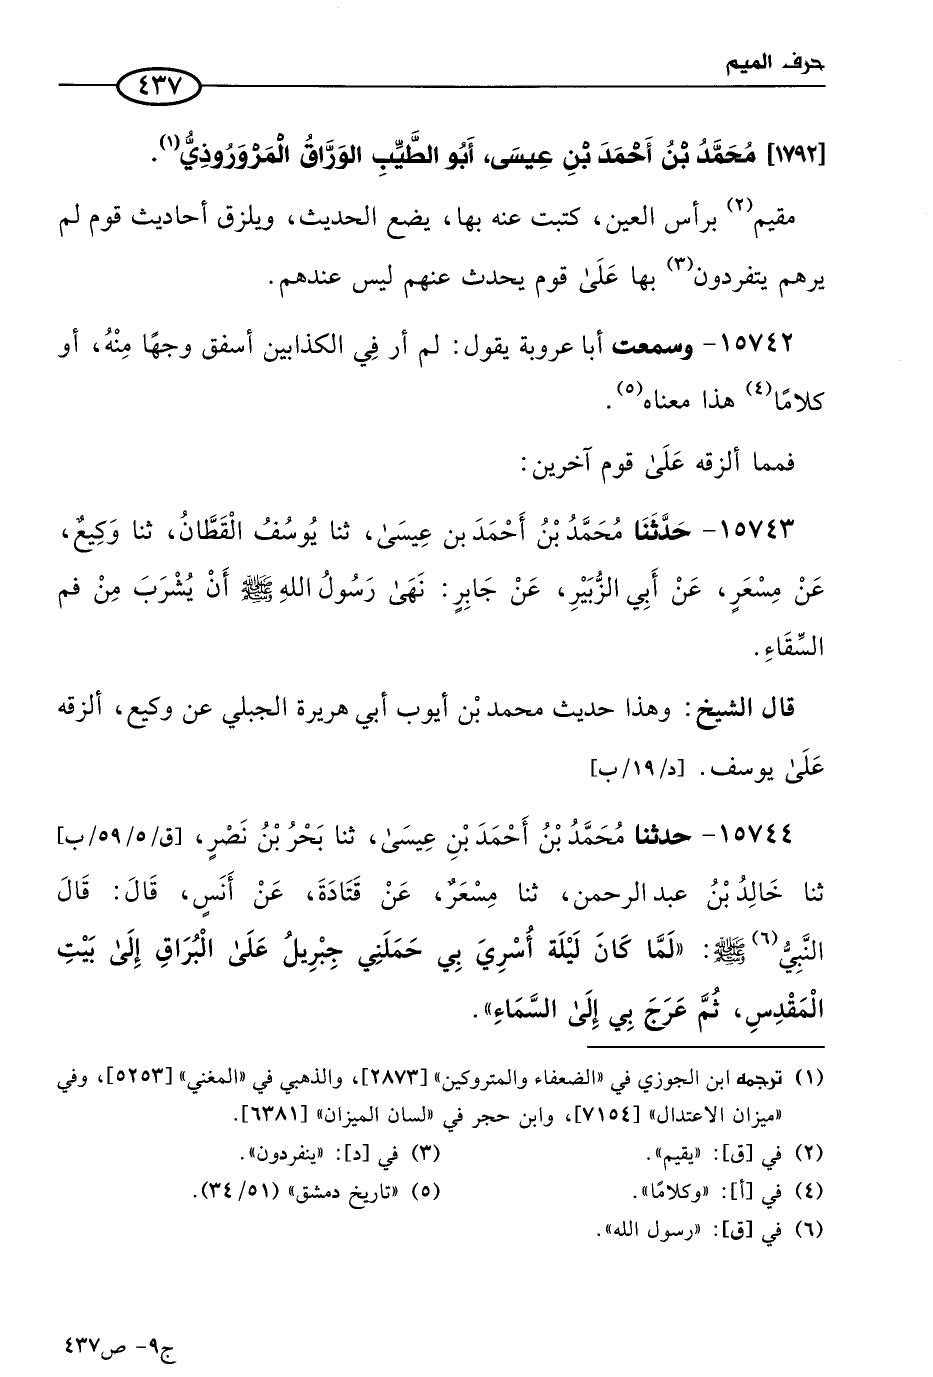 حرف الميم
٤٣٧
[١٧٩٢] مُحَمَّدُ بْنُ أَحْمَدَ بْنِ عِيسَى، أَبُو الطَّيِّبِ الوَرَّاقُ الْمَرْوَرُوذِيُّ(١).
مقيم(٢) برأس العين، كتبت عنه بها، يضع الحديث، ويلزق أحاديث قوم لم
يرهم يتفردون(٣) بها عَلَىٰ قوم يحدث عنهم ليس عندهم.
١٥٧٤٢- وسمعت أبا عروبة يقول: لم أر فِي الكذابين أسفق وجهًا مِنْهُ، أو
كلامًا(٤) هذا معناه(٥).
فمما ألزقه عَلَىٰ قوم آخرين:
١٥٧٤٣- حَدَّثَنَا مُحَمَّدُ بْنُ أَحْمَدَ بن عِيسَىٰ، ثنا يُوسُفُ الْقَطَّانُ، ثنا وَكِيعٌ،
عَنْ مِسْعَرٍ، عَنْ أَبِي الزُّبَيْرِ، عَنْ جَابِرٍ: نَهَىٰ رَسُولُ اللهِ ﷺ أَنْ يُشْرَبَ مِنْ فم
السِّقَاءِ.
قال الشيخ: وهذا حديث محمد بْن أيوب أبي هريرة الجبلي عن وكيع، ألزقه
عَلَىٰ يوسف. [د/١٩/ب]
١٥٧٤٤- حدثنا مُحَمَّدُ بْنُ أَحْمَدَ بْنِ عِيسَىٰ، ثنا بَحْرُ بْنُ نَصْرٍ، [ق/٥٩/٥/ب]
ثنا خَالِدُ بْنُ عبد الرحمن، ثنا مِسْعَرٌ، عَنْ قَتَادَةَ، عَنْ أَنَسٍ، قَالَ: قَالَ
النَّبِيُّ(٦) ﷺ: «لَمَّا كَانَ لَيْلَة أُسْرِيَ بِي حَمَلَنِي جِبْرِيلُ عَلَىٰ الْبُرَاقِ إِلَىٰ بَيْتِ
الْمَقْدِسِ، ثُمَّ عَرَجَ بِي إِلَىٰ السَّمَاءِ».
(١) ترجمه ابن الجوزي في «الضعفاء والمتروكين» [٢٨٧٣]، والذهبي في «المغني» [٥٢٥٣]، وفي
«ميزان الاعتدال» [٧١٥٤]، وابن حجر في «لسان الميزان» [٦٣٨١].
(٢) في [ق]: «يقيم». (٣) في [د]: «ينفردون».
(٤) في [أ]: «وكلامًا». (٥) «تاريخ دمشق» (٥١/ ٣٤).
(٦) في [ق]: «رسول الله».
ج٩- ص٤٣٧